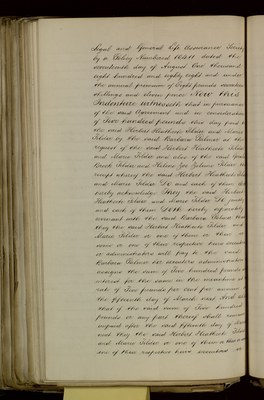 Legal and General Life Assurance Society
by a Policy Numbered 10411 dated the
seventeenth day of August One thousand
eight hundred and eighty eight and under
the annual premium of Eight pounds seventeen
shillings and eleven pence Now this
Indenture witnesseth that in pursuance
of the said Agreement and in consideration
of Five hundred pounds this day paid to
the said Herbert Heathcote and Maria
by the said Barbara at the
request of the said Herbert Heathcote
and Maria and also of the said
and Helena the
receipt whereof the said Herbert Heathcote
and Maria Do and each of them Doth
hereby acknowledge They the said Herbert
Heathcote and Maria Do jointly
and each of them Doth hereby separately
covenant with the said Barbara that
they the said Herbert Heathcote and
Maria or one of them or their or
one of their respective heirs executors
or administrators will pay to the said
Barbara her executors administrators
or assigns the sum of Five hundred pounds with
interest for the same in the meantime at the
rate of Five pounds per cent per annum on
the fifteenth day of March next And
that if the said sum of Five hundred
pounds or any part thereof shall remain
unpaid after the said fifteenth day of March
next they the said Herbert Heathcote
and Maria or one of them or their or
one of their respective heirs executors or